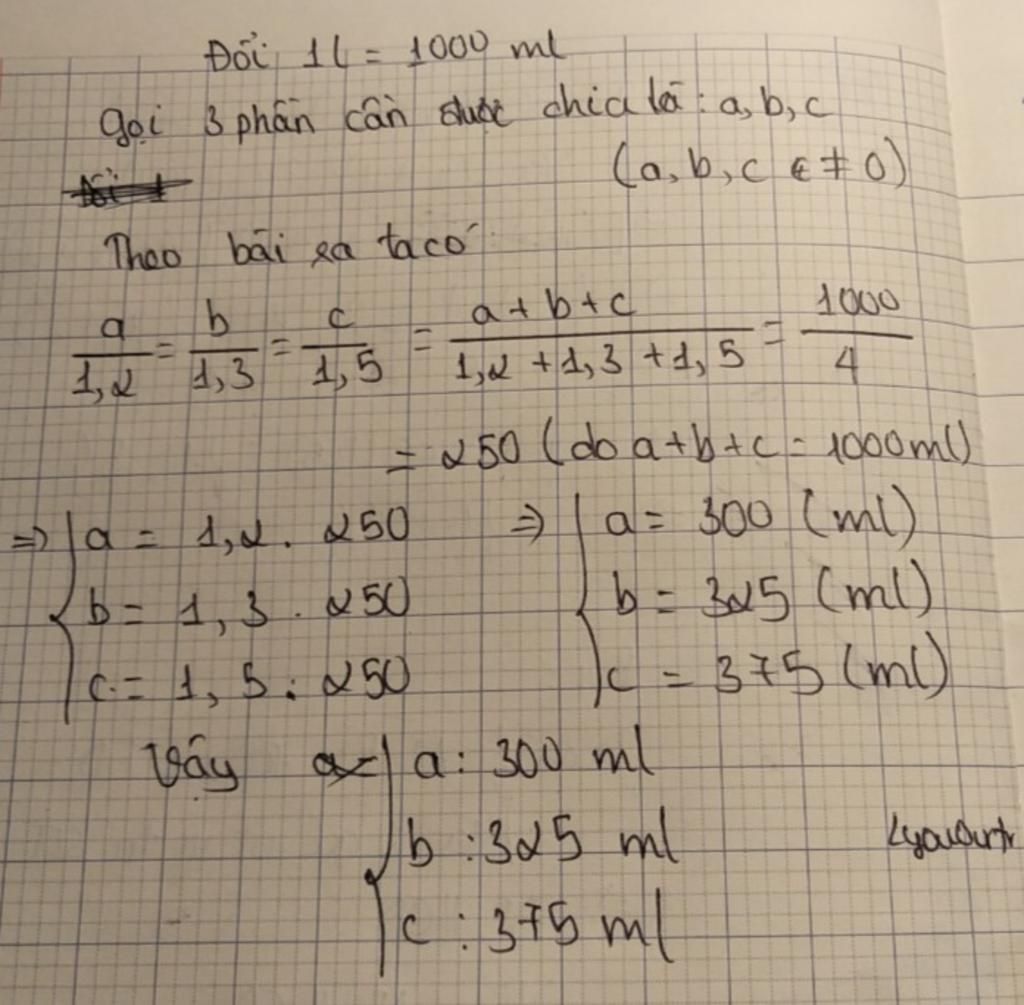 Đổi 1l = 1000 ml
Gọi 3 phần cần được chia là : a, b, c
(a, b, c ∈ ≠ 0)
Theo bài ra ta có
a/1,2 = b/1,3 = c/1,5 = a + b + c/1,2 + 1,3 + 1,5 = 1000/4
= 250 (do a+b+c = 1000ml)
=> { a = 1,2 . 250 => { a = 300 (ml)
b = 1,3 . 250 b = 325 (ml)
c = 1,5 . 250 c = 375 (ml)
Vậy { a : 300 ml
b : 325 ml
c : 375 ml